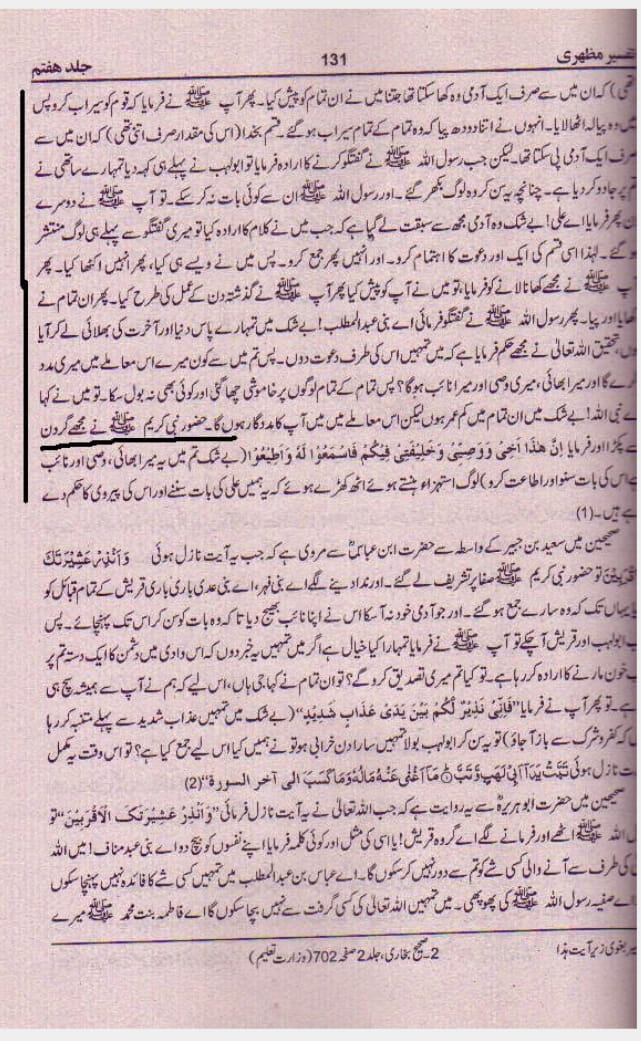 تفسیر مظہری 131 جلد ہفتم
تھی) کہ ان میں سے صرف ایک آدمی وہ کھا سکتا تھا جتنا میں نے ان تمام کو پیش کیا۔ پھر آپ ﷺ نے فرمایا کہ قوم کو سیراب کرو پس
میں وہ پیالہ اٹھا لایا۔ انہوں نے اتنا دودھ پیا کہ وہ تمام کے تمام سیراب ہو گئے۔ قسم بخدا (اس کی مقدار صرف اتنی تھی) کہ ان میں سے
صرف ایک آدمی پی سکتا تھا۔ لیکن جب رسول اللہ ﷺ نے گفتگو کرنے کا ارادہ فرمایا تو ابولہب نے پہلے ہی کہہ دیا تمہارے ساتھی نے
تم پر جادو کر دیا ہے۔ چنانچہ یہ سن کر وہ لوگ بکھر گئے۔ اور رسول اللہ ﷺ ان سے کوئی بات نہ کر سکے۔ تو آپ ﷺ نے دوسرے
دن پھر فرمایا اے علی! بے شک وہ آدمی مجھ سے سبقت لے گیا ہے کہ جب میں نے کلام کا ارادہ کیا تو میری گفتگو سے پہلے ہی لوگ منتشر
ہو گئے۔ لہٰذا اسی قسم کی ایک اور دعوت کا اہتمام کرو۔ اور انہیں پھر جمع کرو۔ پس میں نے ویسے ہی کیا، پھر انہیں اکٹھا کیا۔ پھر
آپ ﷺ نے مجھے کھانا لانے کو فرمایا، تو میں نے آپ کو پیش کیا پھر آپ ﷺ نے گذشتہ دن کے عمل کی طرح کیا۔ پھر ان تمام نے
کھایا اور پیا۔ پھر رسول اللہ ﷺ نے گفتگو فرمائی اے بنی عبد المطلب! بے شک میں تمہارے پاس دنیا اور آخرت کی بھلائی لے کر آیا
ہوں، تحقیق اللہ تعالیٰ نے مجھے حکم فرمایا ہے کہ میں تمہیں اس کی طرف دعوت دوں۔ پس تم میں سے کون میرے اس معاملے میں میری مدد
کرے گا اور میرا بھائی، میری وصی اور میرا نائب ہوگا؟ پس تمام کے تمام لوگوں پر خاموشی چھا گئی اور کوئی بھی نہ بول سکا۔ تو میں نے کہا
اے نبی اللہ! بے شک میں ان تمام میں کم عمر ہوں لیکن اس معاملے میں میں آپ کا مددگار ہوں گا۔ حضور نبی کریم ﷺ نے مجھے گردن
سے پکڑا اور فرمایا اِنَّ هٰذَا اَخِیْ وَوَصِیِّیْ وَخَلِیْفَتِیْ فِیْکُمْ فَاسْمَعُوْا لَهٗ وَاَطِیْعُوْا (بے شک تم میں یہ میرا بھائی، وصی اور نائب
ہے اس کی بات سنو اور اطاعت کرو) لوگ استہزاء ہنستے ہوئے اٹھ کھڑے ہوئے کہ یہ ہمیں علی کی بات سننے اور اس کی پیروی کا حکم دے
رہے ہیں۔ (1)
صحیحین میں سعید بن جبیر کے واسطہ سے حضرت ابن عباسؓ سے مروی ہے کہ جب یہ آیت نازل ہوئی وَاَنْذِرْ عَشِیْرَتَکَ
الْاَقْرَبِیْنَ تو حضور نبی کریم ﷺ صفا پر تشریف لے گئے۔ اور ندا دینے لگے اے بنی فہر، اے بنی عدی باری باری قریش کے تمام قبائل کو
یہاں تک کہ وہ سارے جمع ہو گئے۔ اور جو آدمی خود نہ آسکا اس نے اپنا نائب بھیج دیا تاکہ وہ بات کو سن کر اس تک پہنچائے۔ پس
جب ابولہب اور قریش آ چکے تو آپ ﷺ نے فرمایا تمہارا کیا خیال ہے اگر میں تمہیں یہ خبر دوں کہ اس وادی میں دشمن کا ایک دستہ تم پر
شب خون مارنے کا ارادہ کر رہا ہے۔ تو کیا تم میری تصدیق کرو گے؟ تو ان تمام نے کہا جی ہاں، اس لیے کہ ہم نے آپ سے ہمیشہ سچ ہی
ہے۔ تو پھر آپ نے فرمایا ”فَاِنِّیْ نَذِیْرٌ لَّکُمْ بَیْنَ یَدَیْ عَذَابٍ شَدِیْدٍ“ (بے شک میں تمہیں عذاب شدید سے پہلے متنبہ کر رہا
ہوں کہ کفر و شرک سے باز آجاؤ) تو یہ سن کر ابولہب بولا تمہیں سارا دن خرابی ہو تو نے ہمیں کیا اس لیے جمع کیا ہے؟ تو اس وقت یہ مکمل
سورت نازل ہوئی تَبَّتْ یَدَاۤ اَبِیْ لَهَبٍ وَّتَبَّ مَاۤ اَغْنٰی عَنْهُ مَالُهٗ وَمَا کَسَبَ الی آخر السورة“ (2)
صحیحین میں حضرت ابو ہریرہؓ سے یہ روایت ہے کہ جب اللہ تعالیٰ نے یہ آیت نازل فرمائی ”وَاَنْذِرْ عَشِیْرَتَکَ الْاَقْرَبِیْنَ“ تو
رسول اللہ ﷺ اٹھے اور فرمانے لگے اے گروہ قریش! یا اسی کی مثل اور کوئی کلمہ فرمایا اپنے نفسوں کو بیچ دو اے بنی عبد مناف! میں اللہ
کی طرف سے آنے والی کسی شے کو تم سے دور نہیں کر سکوں گا۔ اے عباس بن عبد المطلب میں تمہیں کسی شے کا فائدہ نہیں پہنچا سکوں
اے صفیہ رسول اللہ ﷺ کی پھوپھی۔ میں تمہیں اللہ تعالیٰ کی کسی گرفت سے نہیں بچا سکوں گا اے فاطمہ بنت محمد ﷺ میرے
تفسیر بغوی زیر آیت ہذا 2۔ صحیح بخاری، جلد 2 صفحہ 702 (وزارت تعلیم)